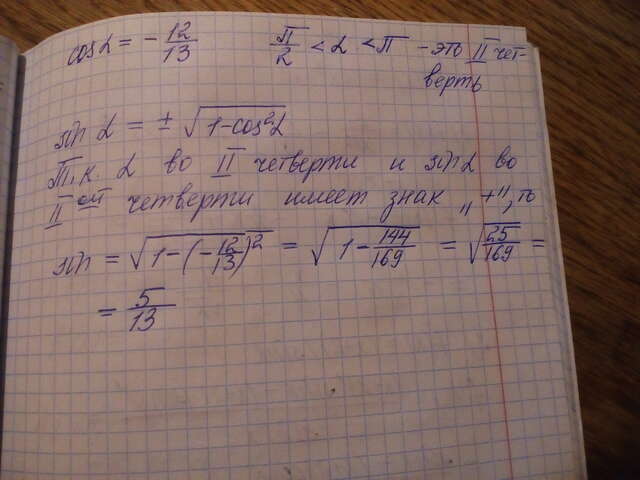 cos α = - 12/13   π/2 < α < π - это II чет-
верть
sin α = ± √(1-cos²α)
Т.к. α во II четверти и sin α во
II ой четверти имеет знак „+", то
sin = √(1-(-12/13)²) = √(1-144/169) = √(25/169) =
= 5/13